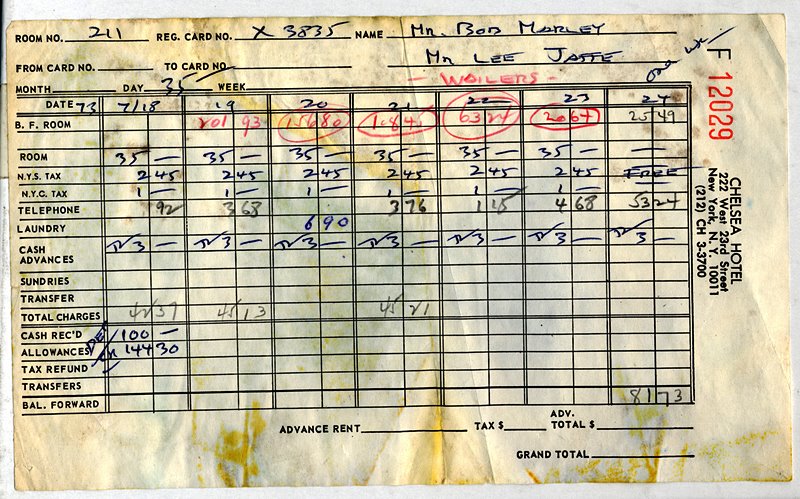 ROOM NO. 211 REG. CARD NO. X 3835 NAME Mr. BOB MARLEY
FROM CARD NO. TO CARD NO. Mr LEE JAFFE
MONTH DAY 35/ WEEK - WAILERS -
DATE 73 7/18 19 20 21 22 23 24
B. F. ROOM 201 93 156 80 108 45 63 24 20 64 25 49
ROOM 35 — 35 — 35 — 35 — 35 — 35 —
N.Y.S. TAX 2 45 2 45 2 45 2 45 2 45 2 45 FREE
N.Y.C. TAX 1 — 1 — 1 — 1 — 1 — 1 —
TELEPHONE 92 3 68 3 76 1 15 4 68 53 24
LAUNDRY 6 90
CASH ADVANCES TV 3 — TV 3 — TV 3 — TV 3 — TV 3 — TV 3 — TV 3 —
SUNDRIES
TRANSFER
TOTAL CHARGES 42 37 45 13 45 21
CASH REC'D 100 —
ALLOWANCES 144 30
TAX REFUND
TRANSFERS
BAL. FORWARD 81 73
ADVANCE RENT TAX $ ADV. TOTAL $
GRAND TOTAL
F 12029
CHELSEA HOTEL
222 West 23rd Street
New York, N. Y. 10011
(212) CH 3-3700